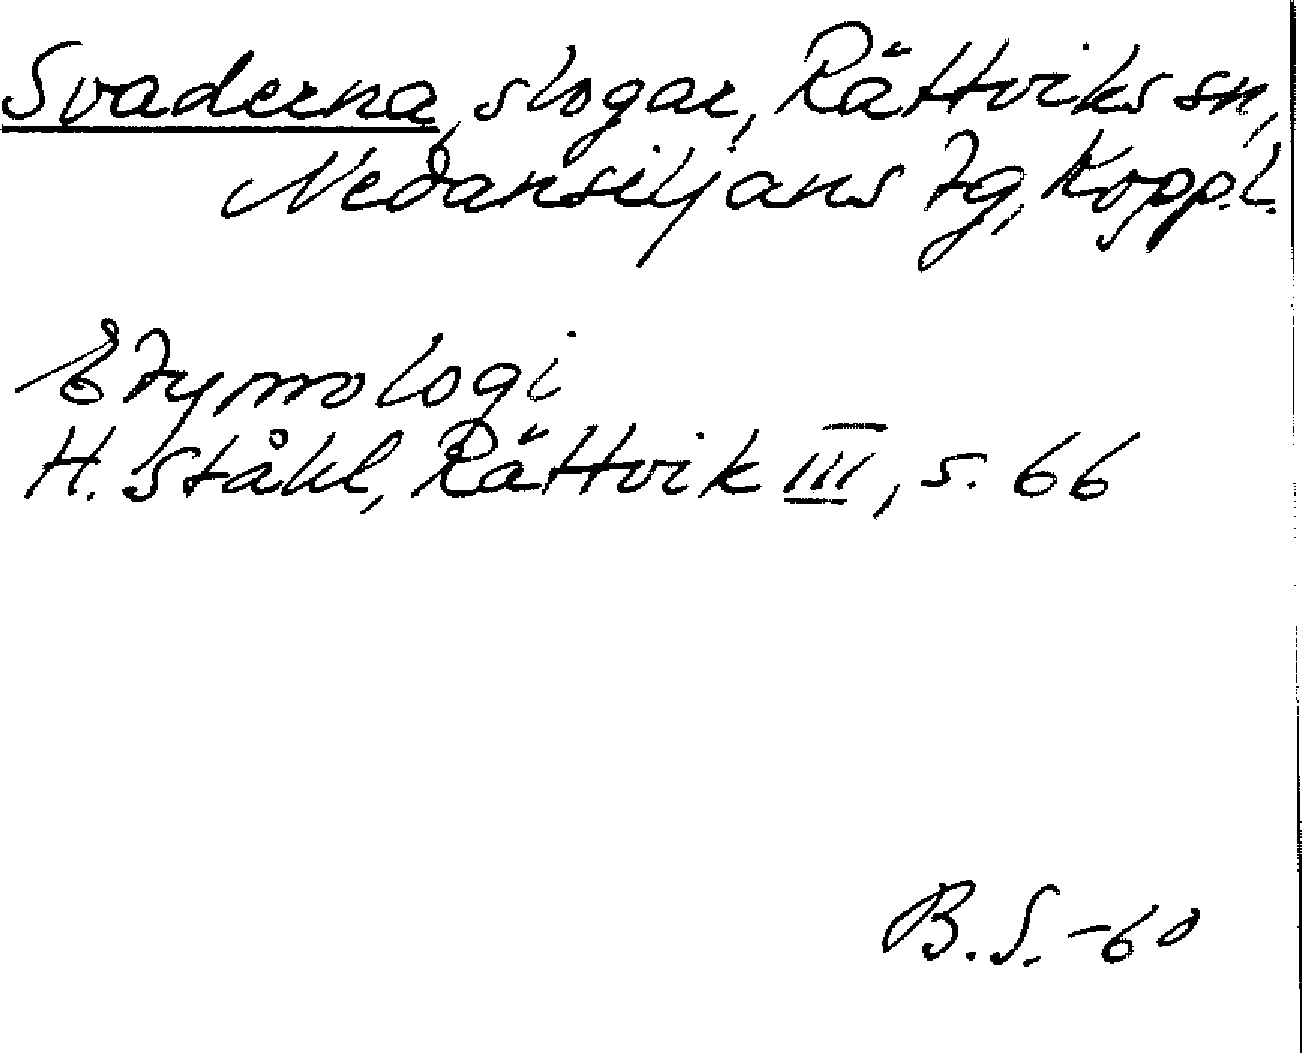 Svaderna, slogar, Rättviks sn,
Nedansiljans tg, Kopp.l.
Etymologi
H. Ståhl, Rättvik III, s. 66
B.S. -60